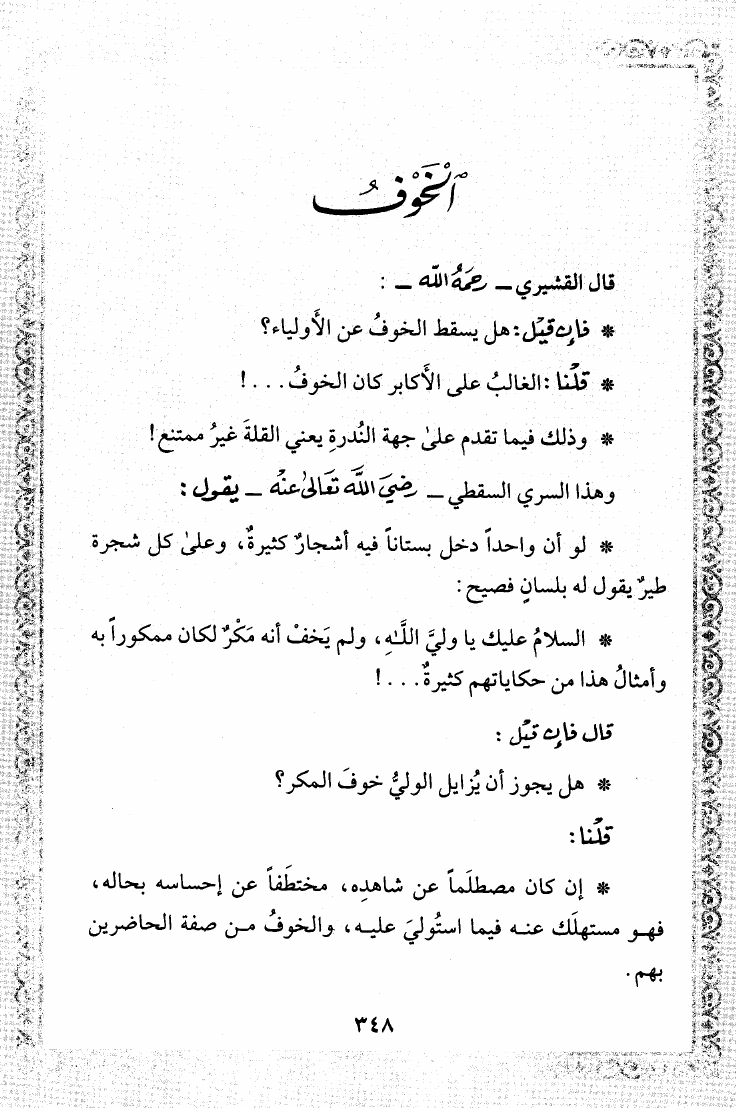 ٱلْخَوْفُ
قال القشيري ــ رَحِمَهُ اللّٰه ــ :
❋ فإن قيْل: هل يسقط الخوفُ عن الأَولياء؟
❋ قلْنا: الغالبُ على الأَكابر كان الخوفُ. . .!
❋ وذلك فيما تقدم علىٰ جهة النُدرةِ يعني القلةَ غيرُ ممتنع!
وهذا السري السقطي ــ رضيَ اللَّه تعَالىٰ عنْه ــ يقول:
❋ لو أن واحداً دخل بستاناً فيه أشجارٌ كثيرةٌ، وعلىٰ كل شجرة
طيرٌ يقول له بلسانٍ فصيح:
❋ السلامُ عليك يا وليَّ اللَّـٰهِ، ولم يَخفْ أنه مَكْرٌ لكان ممكوراً به
وأمثالُ هذا من حكاياتهم كثيرةٌ. . .!
قال فإن قيْل:
❋ هل يجوز أن يُزايل الوليُّ خوفَ المكر؟
قلْنا:
❋ إن كان مصطلَماً عن شاهدِه، مختطَفاً عن إحساسه بحاله،
فهـو مستهلَك عنـه فيما استُوليَ عليـه، والخوفُ مـن صفة الحاضرين
بهم.
٣٤٨